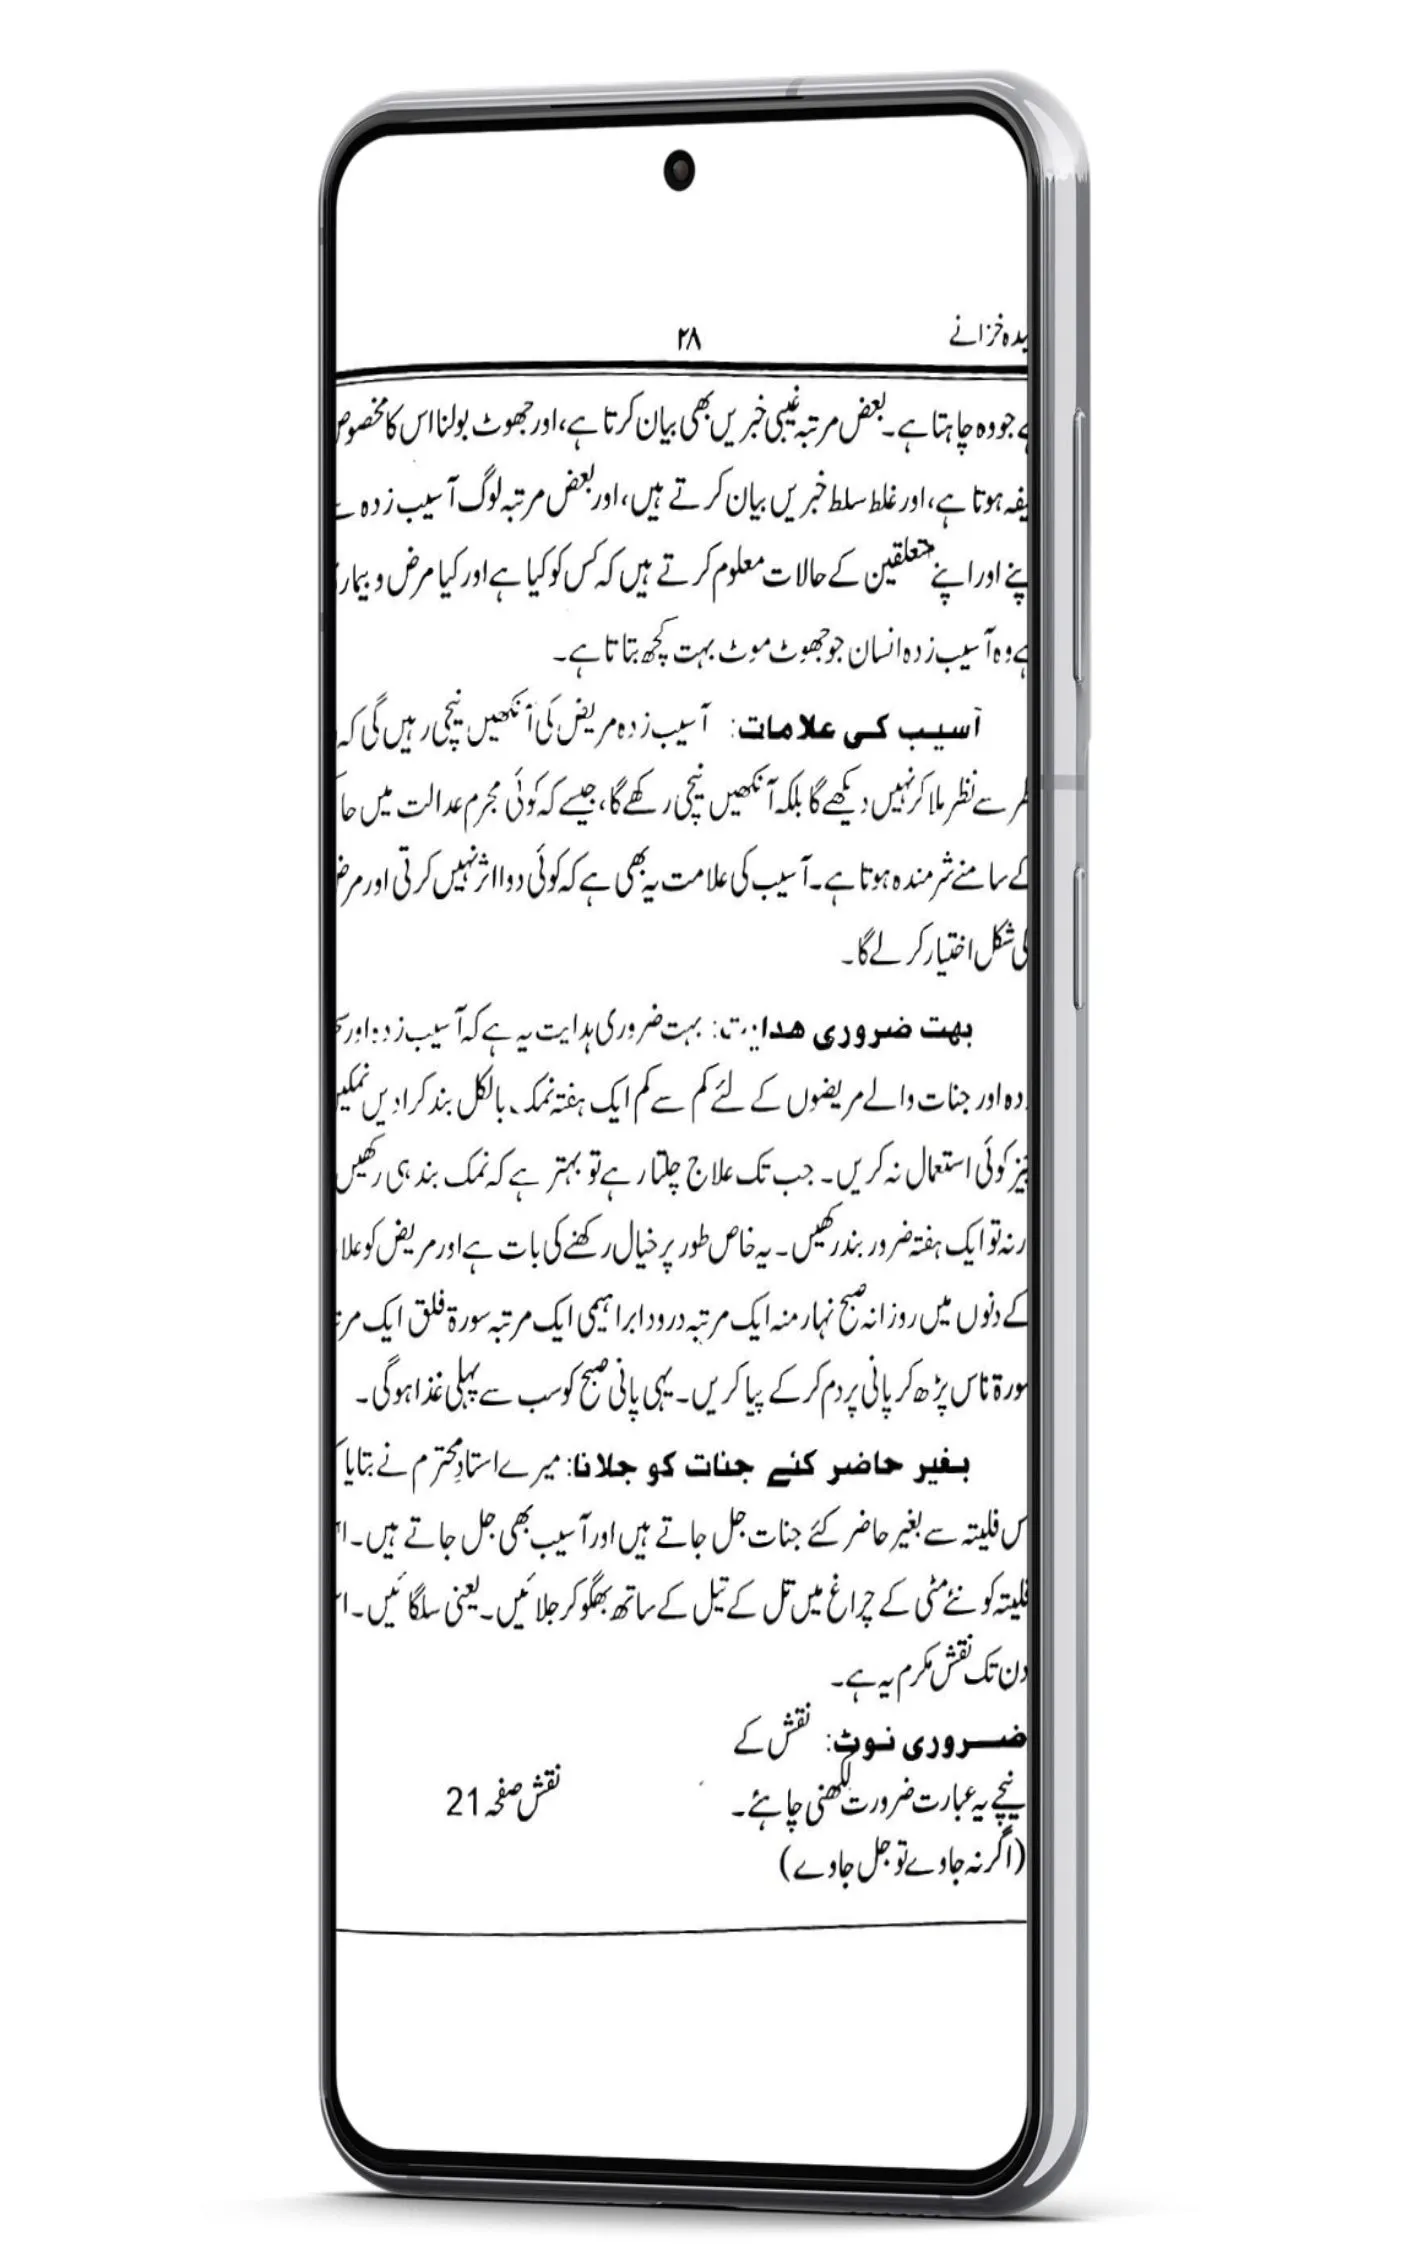 یدہ خزانے ۲۸
جو وہ چاہتا ہے۔ بعض مرتبہ غیبی خبریں بھی بیان کرتا ہے، اور جھوٹ بولنا اس کا مخصوص
یفہ ہوتا ہے، اور غلط سلط خبریں بیان کرتے ہیں، اور بعض مرتبہ لوگ آسیب زدہ سے
پنے اور اپنے متعلقین کے حالات معلوم کرتے ہیں کہ کس کو کیا ہے اور کیا مرض و بیماری
ہے وہ آسیب زدہ انسان جو جھوٹ موٹ بہت کچھ بتاتا ہے۔
آسیب کی علامات: آسیب زدہ مریض کی آنکھیں نیچی رہیں گی کہ
سے نظر ملا کر نہیں دیکھے گا بلکہ آنکھیں نیچی رکھے گا، جیسے کہ کوئی مجرم عدالت میں حا
کے سامنے شرمندہ ہوتا ہے۔ آسیب کی علامت یہ بھی ہے کہ کوئی دوا اثر نہیں کرتی اور مرض
کی شکل اختیار کر لے گا۔
بہت ضروری ہدایت: بہت ضروری ہدایت یہ ہے کہ آسیب زدہ اور
دہ اور جنات والے مریضوں کے لئے کم سے کم ایک ہفتہ نمک بالکل بند کرا دیں نمکین
چیز کوئی استعمال نہ کریں۔ جب تک علاج چلتا رہے تو بہتر ہے کہ نمک بند ہی رکھیں
رنہ تو ایک ہفتہ ضرور بند رکھیں۔ یہ خاص طور پر خیال رکھنے کی بات ہے اور مریض کو علا
کے دنوں میں روزانہ صبح نہار منہ ایک مرتبہ درود ابراہیمی ایک مرتبہ سورۃ فلق ایک مرتبہ
سورۃ ناس پڑھ کر پانی پر دم کر کے پیا کریں۔ یہی پانی صبح کو سب سے پہلی غذا ہوگی۔
بغیر حاضر کئے جنات کو جلانا: میرے استاد محترم نے بتایا
س فلیتہ سے بغیر حاضر کئے جنات جل جاتے ہیں اور آسیب بھی جل جاتے ہیں۔
فلیتہ کو نئے مٹی کے چراغ میں تل کے تیل کے ساتھ بھگو کر جلائیں۔ یعنی سلگائیں۔
دن تک نقش مکرم یہ ہے۔
ضروری نوٹ: نقش کے
نیچے یہ عبارت ضرورت لکھنی چاہئے۔
نقش صفحہ 21
(اگر نہ جاوے تو جل جاوے)